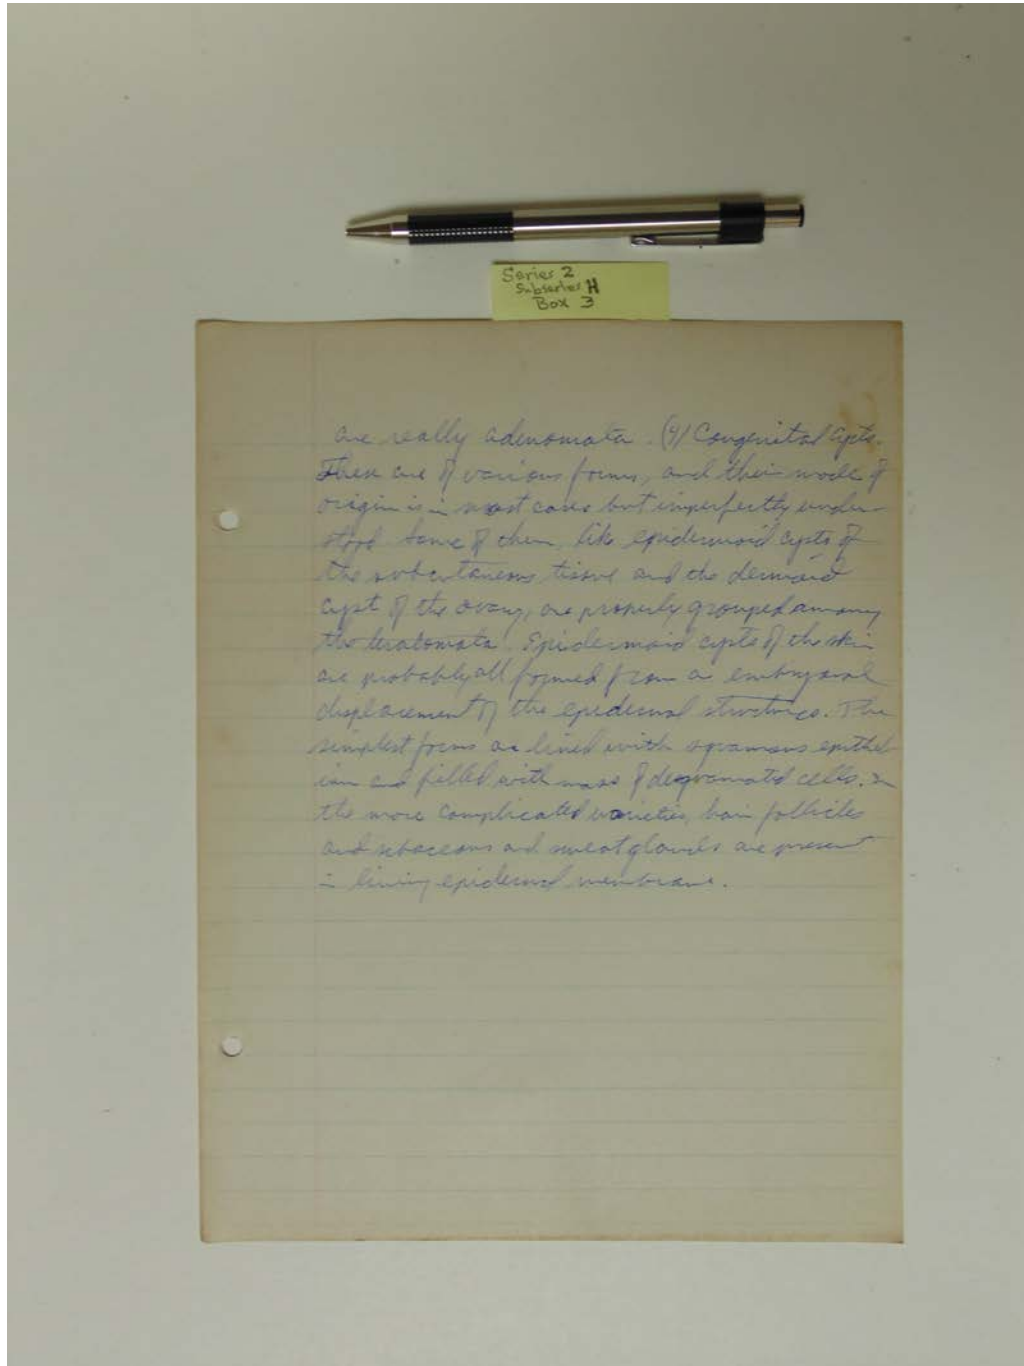 Series 2
Subseries H
Box 3
are really adenomata. (4) Congenital cysts.
These are of various forms, and their mode of
origin is in most cases but imperfectly under-
stood. Some of them, like epidermoid cysts of
the subcutaneous tissue and the dermoid
cyst of the ovary, are properly grouped among
the teratomata. Epidermoid cysts of the skin
are probably all formed from an embryonal
displacement of the epidermal structures. The
simplest forms are lined with squamous epithel-
ium and filled with mass of desquamated cells. In
the more complicated varieties, hair follicles
and sebaceous and sweat glands are present
in lining epidermal membrane.